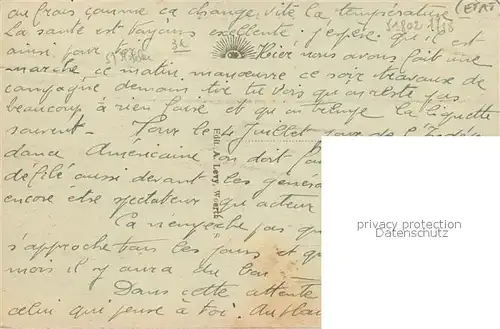 au frais comme ça change vite la température (ETAT
La santé est toujours excellente. j'espère qu'il en est
51802 195
ainsi pour toi. 3L Hier nous avons fait une
marche, ce matin, manœuvre ce soir travaux de
campagne demain tir tu vois qu'on reste pas
beaucoup à rien faire et qu'on trempe la liquette
souvent - Pour le 4 juillet jour de l'Indé
dance Américaine on doit
défilé aussi devant les généra
encore être spectateur qu'acteur
Ça n'empêche pas qu
s'approche tous les jours et qu
mois il y aura du bon
Dans cette attente
celui qui pense à toi.
Edit. A. Levy, Woerth s. S.
privacy protection
Datenschutz